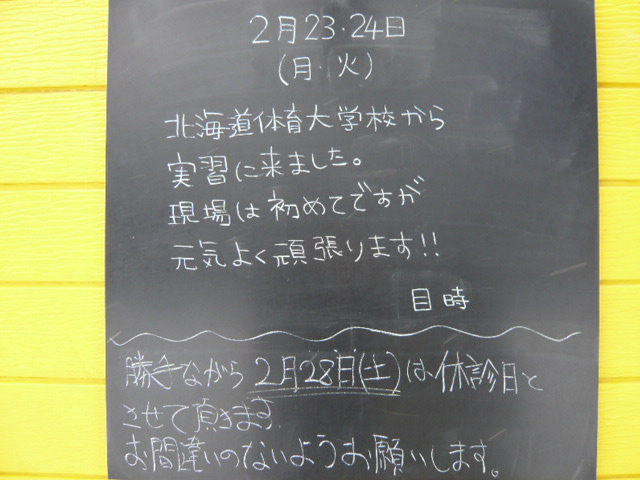 2月23・24日
(月・火)
北海道体育大学校から
実習に来ました。
現場は初めてですが
元気よく頑張ります!!
目時
勝手ながら2月28日(土)は休診日と
させて頂きます.
お間違いのないようお願いします。